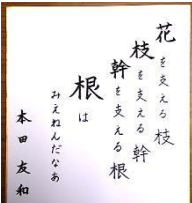 花を支える枝
枝を支える幹
幹を支える根
根は
みえねんだなあ
本田友和